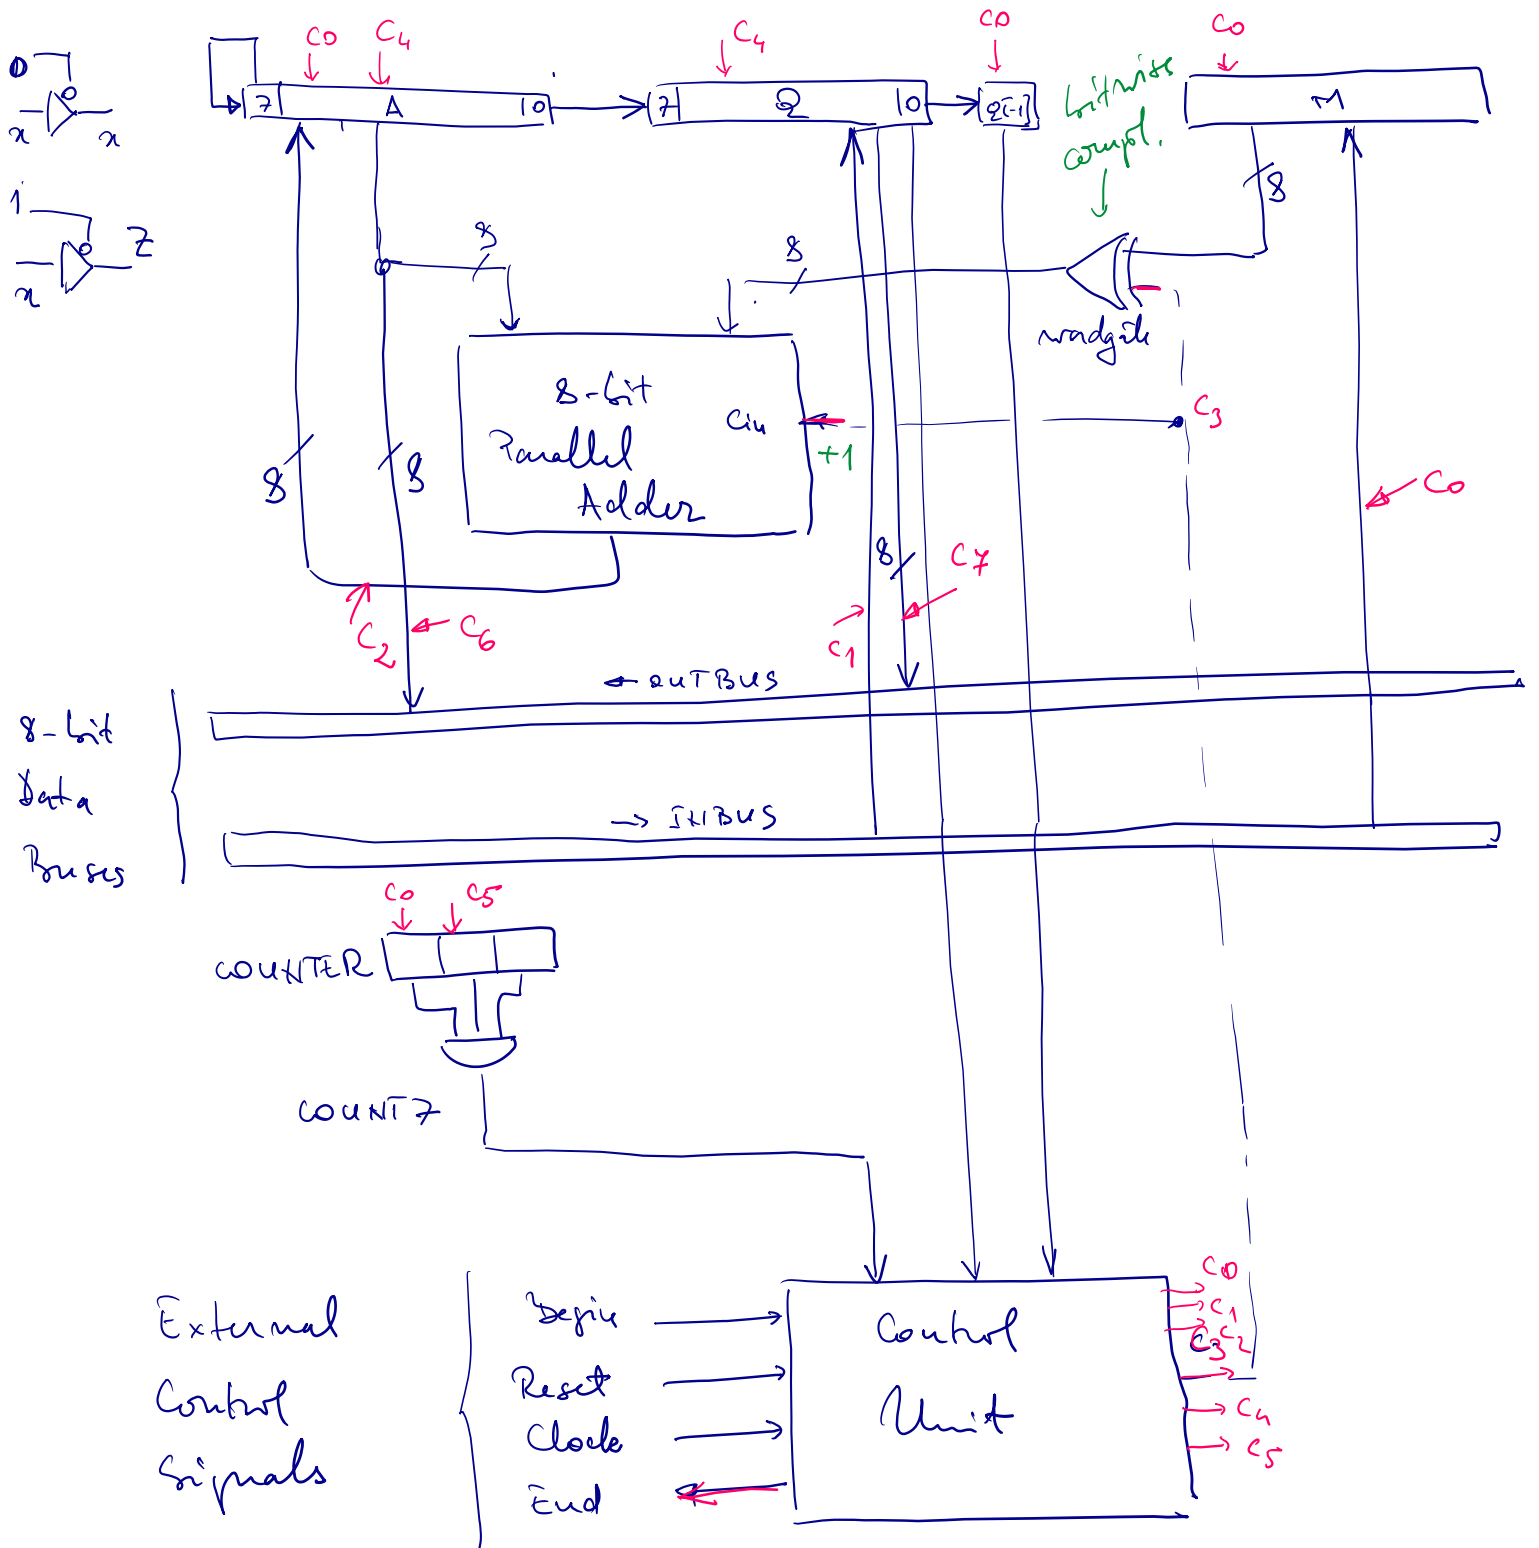 C0 C4 C4 C0 C0
0
7 A 0 7 Q 0 Q[-1] M
x x
bitwise
compl.
8
1
Z
x
8 8
wordgate
8-bit
Parallel
Adder
Cin
+1
C3
8 8
C0
8
C7
C2 C6 C1
← OUTBUS
8-bit
Data
Buses
→ INBUS
C0 C5
COUNTER
COUNT7
External
Control
Signals
Begin
Reset
Clock
End
Control
Unit
C0
C1
C2
C3
C4
C5